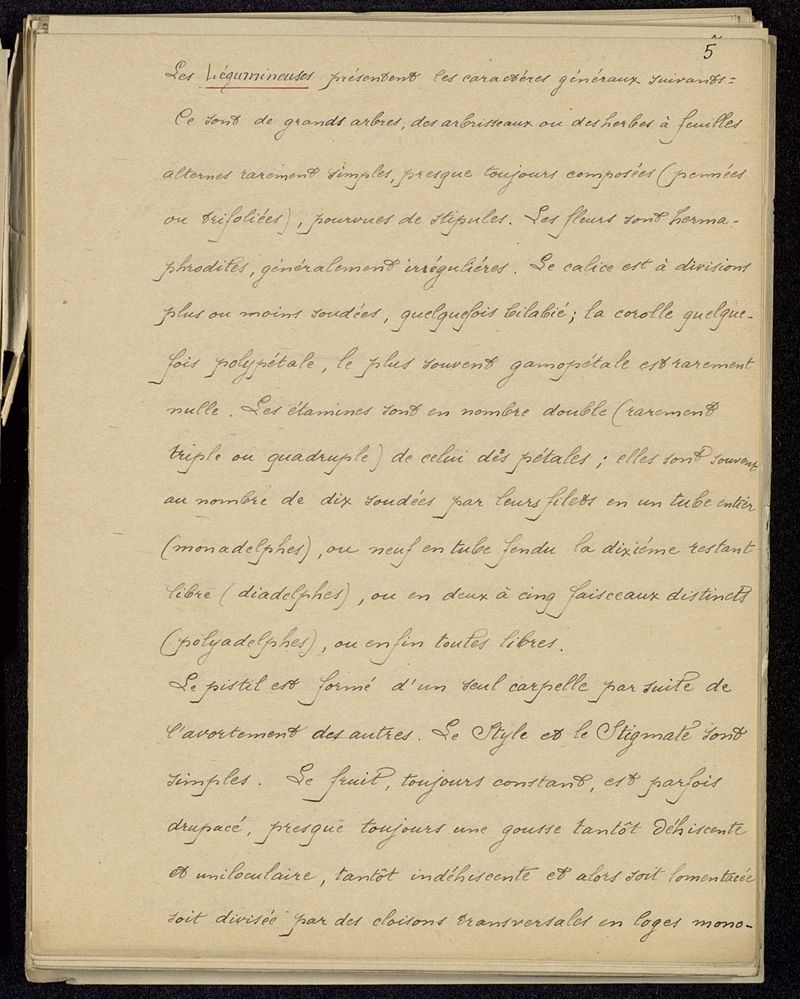 5
Les Légumineuses présentent les caractères généraux suivants=
Ce sont de grands arbres, des arbrisseaux ou des herbes à feuilles
alternes rarement simples, presque toujours composées (pennées
ou trifoliées), pourvues de stipules. Les fleurs sont herma-
phrodites, généralement irrégulières. Le calice est à divisions
plus ou moins soudées, quelquefois bilabié; la corolle quelque-
fois polypétale, le plus souvent gamopétale est rarement
nulle. Les étamines sont en nombre double (rarement
triple ou quadruple) de celui des pétales; elles sont souvent
au nombre de dix soudées par leurs filets en un tube entier
(monadelphes), ou neuf en tube fendu la dixième restant
libre (diadelphes), ou en deux à cinq faisceaux distincts
(polyadelphes), ou enfin toutes libres.
Le pistil est formé d'un seul carpelle par suite de
l'avortement des autres. Le Style et le Stigmate sont
simples. Le fruit, toujours constant, est parfois
drupacé, presque toujours une gousse tantôt déhiscente
et uniloculaire, tantôt indéhiscente et alors soit lomentacée
soit divisée par des cloisons transversales en loges mono-